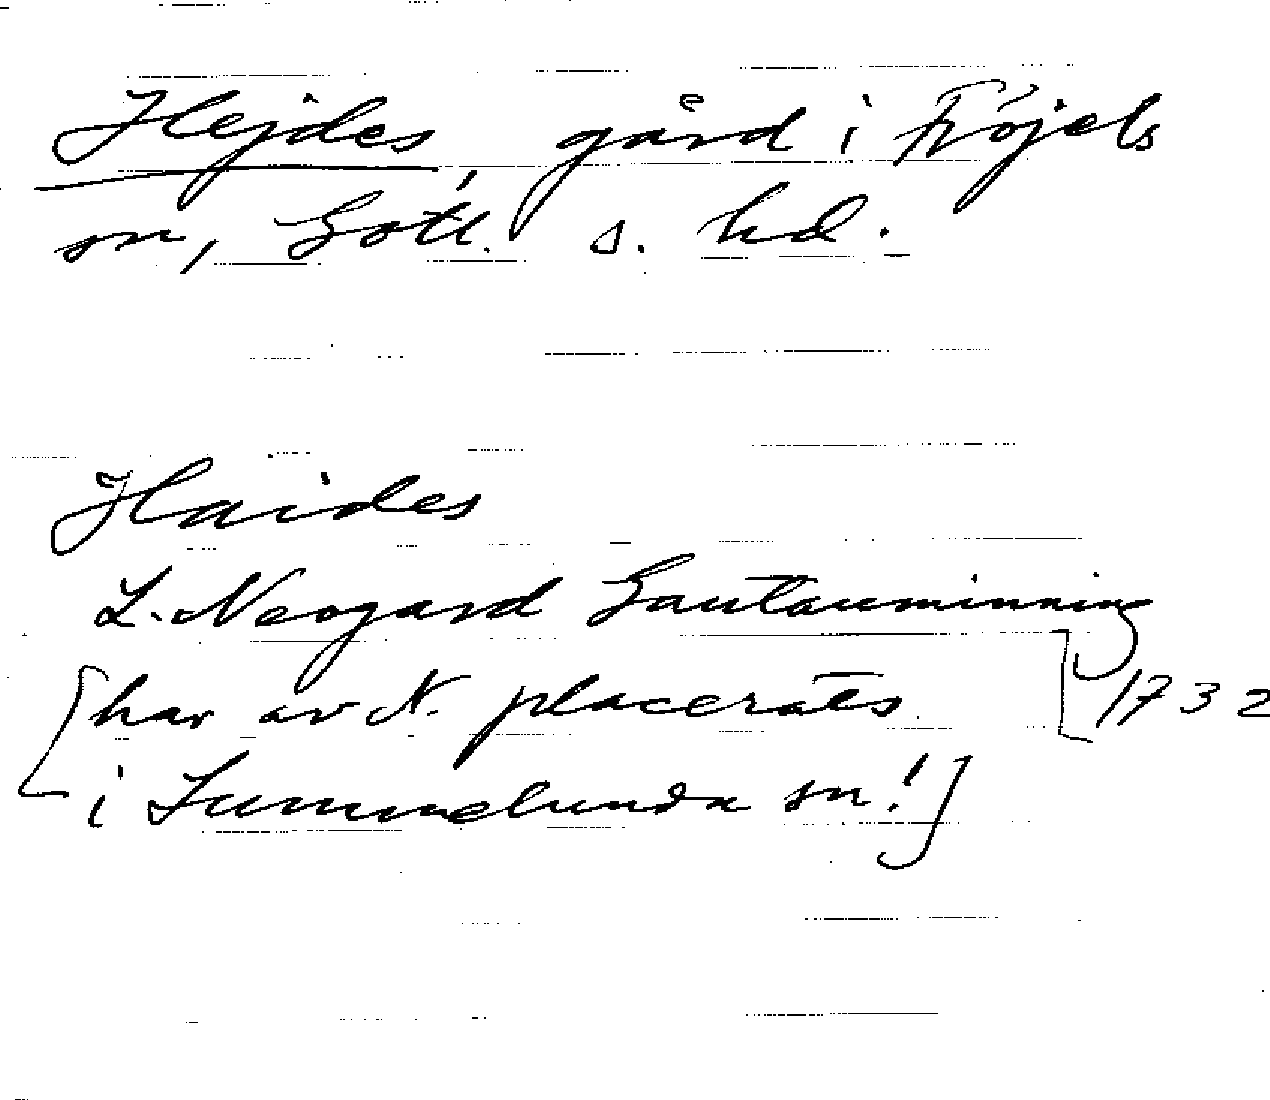 Hejdes gård i Fröjels
sn, Gotl. s. hd.
Haides
L. Neogard Gautauminning
[har av N. placerats 1732
i Lummelunda sn!]